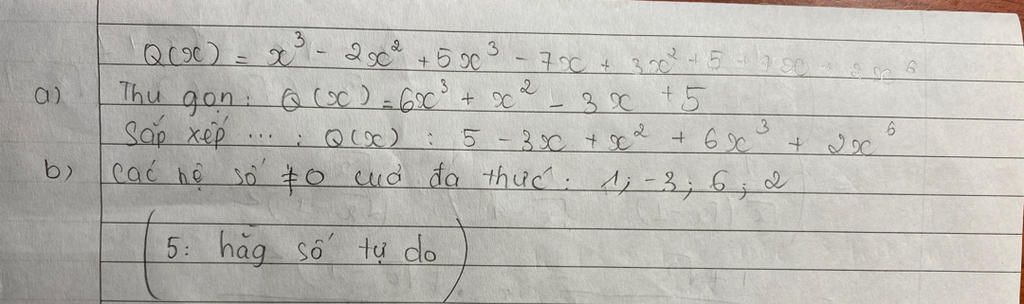 Q(x) = x³ - 2x² + 5x³ - 7x + 3x² + 5 + x + 2x⁶
a) Thu gọn: Q(x) = 6x³ + x² - 3x + 5
Sắp xếp ... : Q(x) : 5 - 3x + x² + 6x³ + 2x⁶
b) Các hệ số ≠0 cuả đa thức: 1; -3; 6; 2
(5: hăg số tự do)